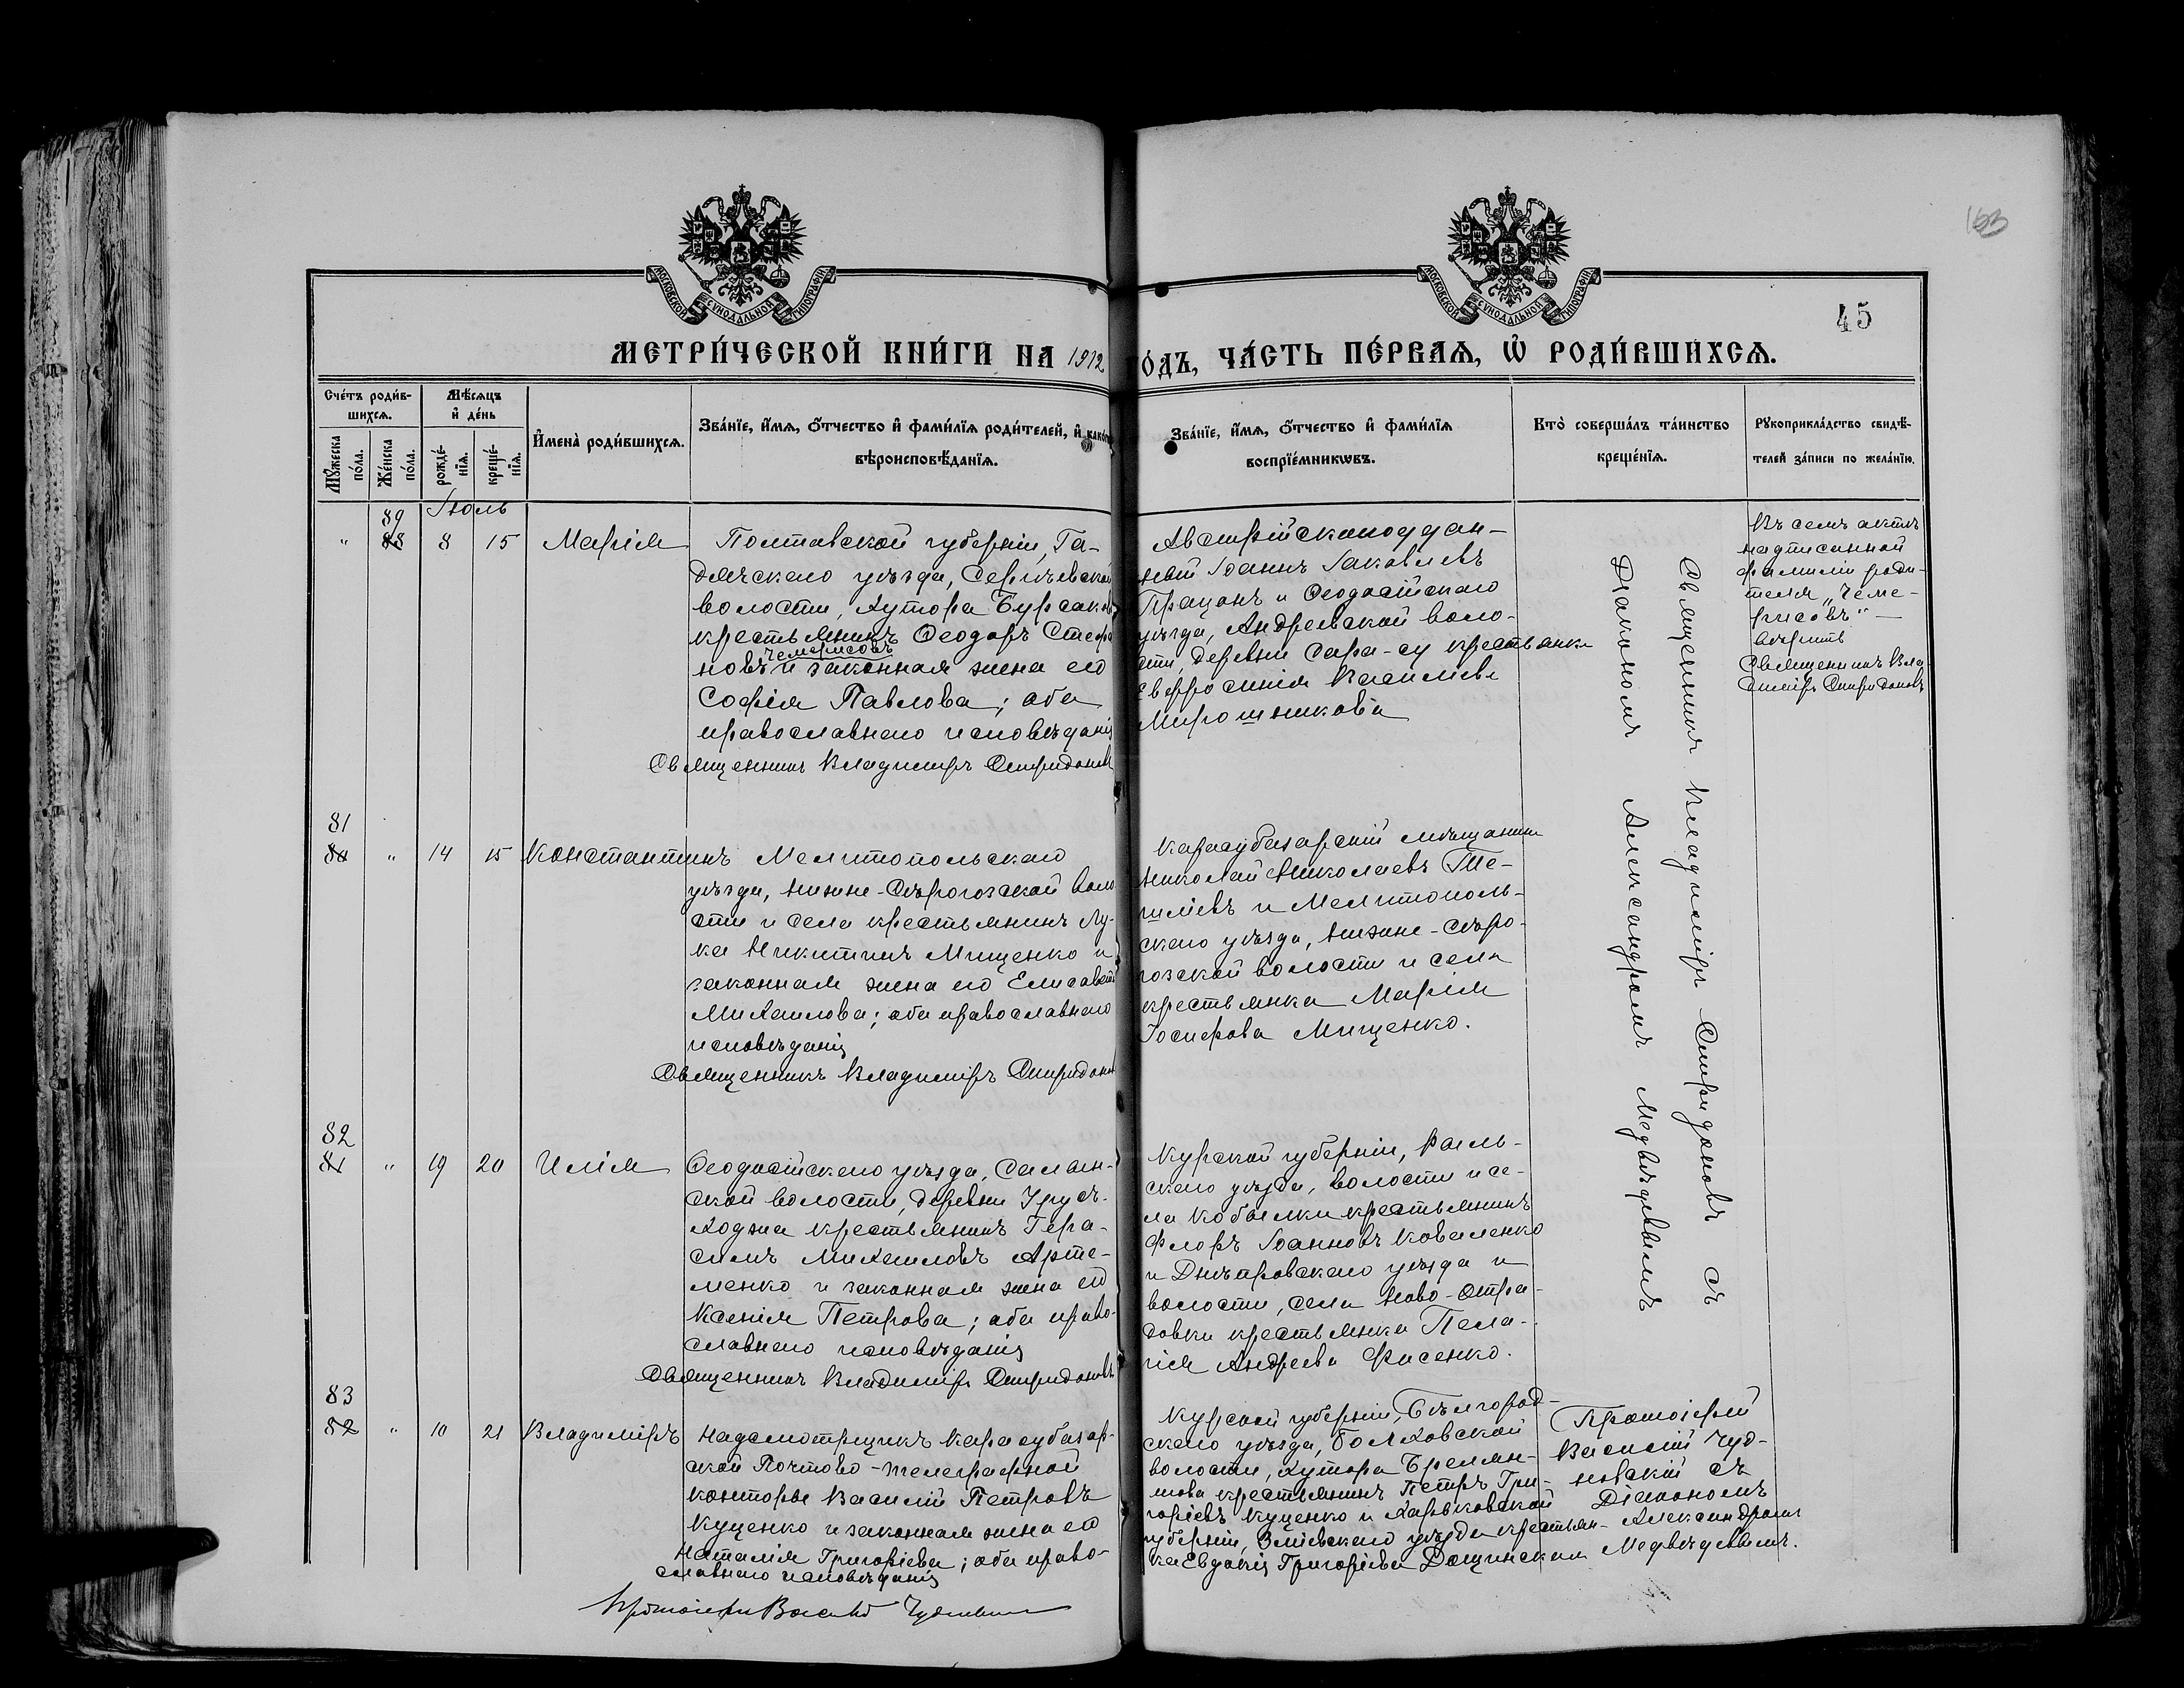 163
МОСКОВСКОЙ СУНОДАЛЬНОЙ ТИПОГРАФІИ
МОСКОВСКОЙ СУНОДАЛЬНОЙ ТИПОГРАФІИ
45
МЕТРИ́ЧЕСКОЙ КНИ́ГИ НА 1912 ГО́ДЪ, ЧА́СТЬ ПЕ́РВАѦ, Ѡ҆ РОДИ́ВШИХСѦ.
Сче́тъ роди́в-
шихсѧ.
Мꙋ́жеска
по́ла.
Же́нска
по́ла.
Мѣ́сѧцъ
и҆ де́нь
рожде́-
нїѧ.
креще́-
нїѧ.
И҆мена̀ роди́вшихсѧ.
Зва́нїе, и҆́мѧ, ѻ҆́тчество и҆ фами́лїѧ роди́телей, и҆ како́гѡ
вѣроисповѣ́данїѧ.
Зва́нїе, и҆́мѧ, ѻ҆́тчество и҆ фами́лїѧ
воспрїе́мникѡвъ.
Кто̀ соверша́лъ та́инство
креще́нїѧ.
Рꙋкоприкла́дство свидѣ́-
телей за́писи по жела́нїю.
Іюль
89
" 88 8 15 Марія
Полтавской губерніи, Га-
дячскаго уѣзда,
волости, хутора Бурсаков
крестьянинъ Ѳеодоръ Стефа
Чемерисовъ
новъ и законная жена его
Софія Павлова; оба
православнаго исповѣданія
Священникъ Владиміръ Спиридоновъ
Австрійскоподдан-
ный Іоаннъ Іаковлевъ
Працонъ и Ѳеодосійскаго
уѣзда, Андреевской воло-
сти, деревни Сара-су крестьянка
Евфросинія Васильева
Мирошникова
Священникъ Владиміръ Спиридоновъ съ
Діакономъ Александромъ Медвѣдевымъ
Въ семъ актѣ
надписанной
фамиліи роди-
теля „Чеме-
рисовъ" —
вѣрить
Священникъ Вла-
диміръ Спиридоновъ
81
80 " 14 15 Константинъ
Мелитопольскаго
уѣзда, Нижне-Сѣрогозской воло
сти и села крестьянинъ Лу-
ка Никитинъ Мищенко и
законная жена его Елисавета
Михаилова; оба православнаго
исповѣданія
Священникъ Владиміръ Спиридоновъ
Карасубазарскій мѣщанинъ
Николай Николаевъ Те-
шлевъ и Мелитополь-
скаго уѣзда, Нижне-Сѣро-
гозской волости и села
крестьянка Марія
Іосифова Мищенко.
82
81 " 19 20 Илія
Ѳеодосійскаго уѣзда, Салын-
ской волости, деревни Урусъ-
Ходжа крестьянинъ Гера-
симъ Михаиловъ Арте-
менко и законная жена его
Ксенія Петрова; оба право-
славнаго исповѣданія
Священникъ Владиміръ Спиридоновъ
Курской губерніи, Рыль-
скаго уѣзда, волости и се-
ла Кобылки крестьянинъ
Флоръ Іоанновъ Коваленко
и Днѣпровскаго уѣзда и
волости, села Ново-Отра-
довки крестьянка Пела-
гія Андреева Фисенко.
83
82 " 10 21 Владиміръ
Надсмотрщикъ Карасубазар-
ской Почтово-телеграфной
конторы Василій Петровъ
Куценко и законная жена его
Наталія Григоріева; оба право-
славнаго исповѣданія
Протоіерей Василій Чудновскій
Курской губерніи, Бѣлгород-
скаго уѣзда, Болховской
волости, хутора
крестьянинъ Петръ Гри-
горіевъ Куценко и Харьковской
губерніи, Зміевскаго уѣзда крестьян-
ка Евдокія Григоріева Дощинская
Протоіерей
Василій Чуд-
новскій съ
Діакономъ
Александромъ
Медвѣдевымъ.